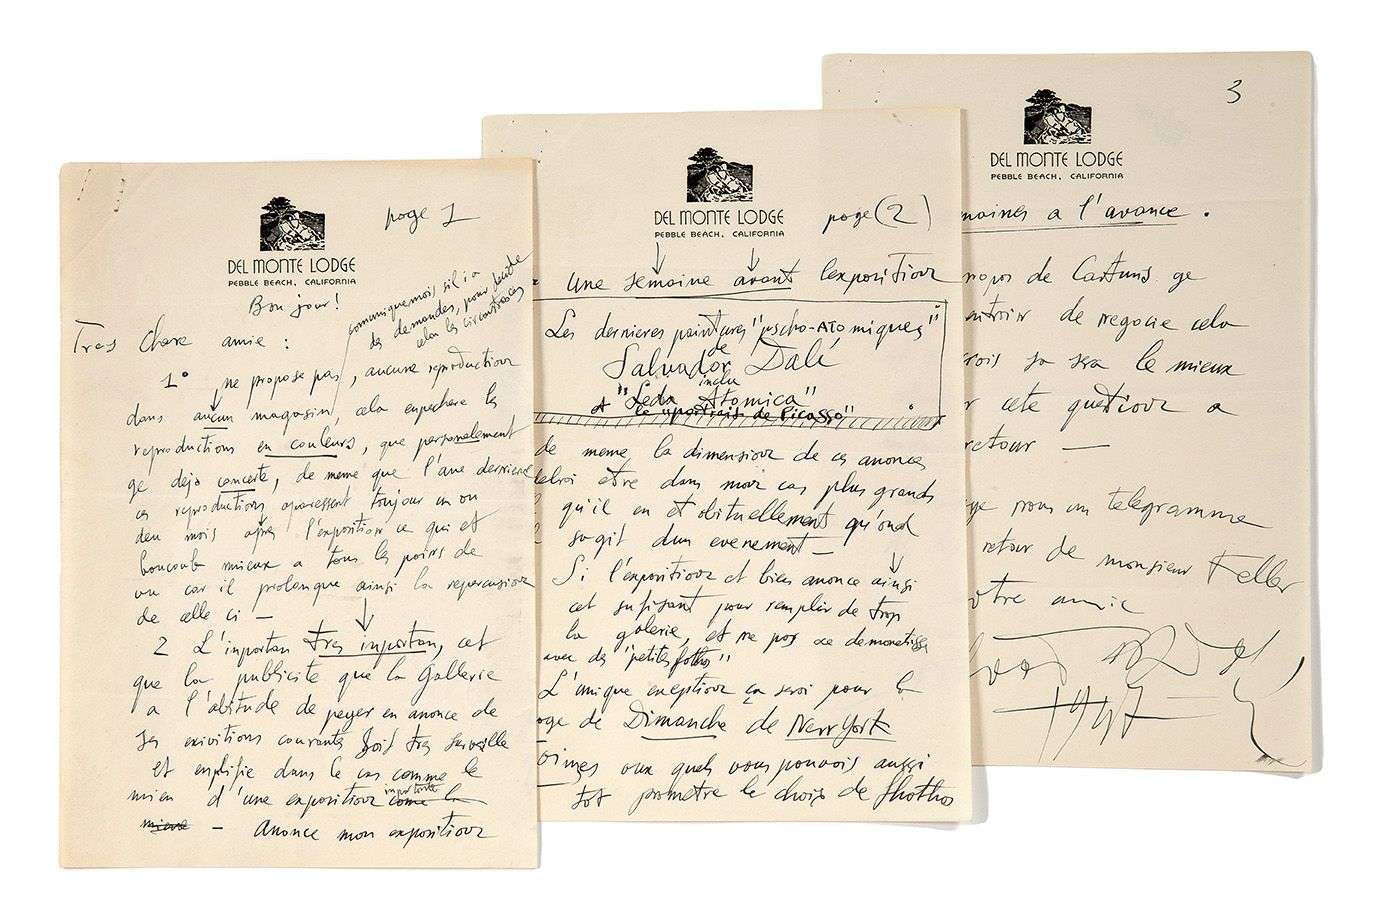 DEL MONTE LODGE
PEBBLE BEACH, CALIFORNIA
page 1
Bonjour!
Tres Chere amie :
comuniquemois sil i a
des demandes, pour decide
selon les circonstances
1° ne propose pas, aucune reproduction
dans aucun magasin, cela enpechere les
reproductions en couleurs, que personelement
ge deja concerte, de meme que l'ane derniere
ces reproductions aparessent toujour un ou
deu mois après l'exposition ce qui et
boucoub mieux a tous les poins de
vu car il prolonque ainsi la repercusion
de celle ci —
2 L'inportan tres inportan, cet
que la publicite que la Gallerie
a l'abitude de peyer en anonce de
ses exivitions courantes soit tres surveille
et enplifie dans le cas comme le
mien d'une exposition importante come la
miene — Anonce mon exposition
DEL MONTE LODGE
PEBBLE BEACH, CALIFORNIA
page (2)
Une semaine avant l'exposition
Les dernieres peintures "pscho-ATomiques"
de
Salvador Dalí
inclu
"Leda Atomica"
et "le uportrait de Picasso"
de meme, la dimension de ces anonces
etre dans mon cas plus grands
qu'il en et obituellement qu'and
sagit dun evenement —
Si l'exposition et bien anonce ainsi
cet sufisant pour remplir de trop
la galerie, et ne pas ce demonetiser
avec des "petites fothos"
L'unique exeption ça seroi pour la
de Dimanche de NewYork
aux quels vous pouvois aussi
tot prometre le choix de fhothos
DEL MONTE LODGE
PEBBLE BEACH, CALIFORNIA
3
maines a l'avance.
ropos de Cartuns ge
de negocie cela
rois sa sera le mieux
cete question a
retour —
un telegramme
retour de monsieur Feller
otre amie
1947